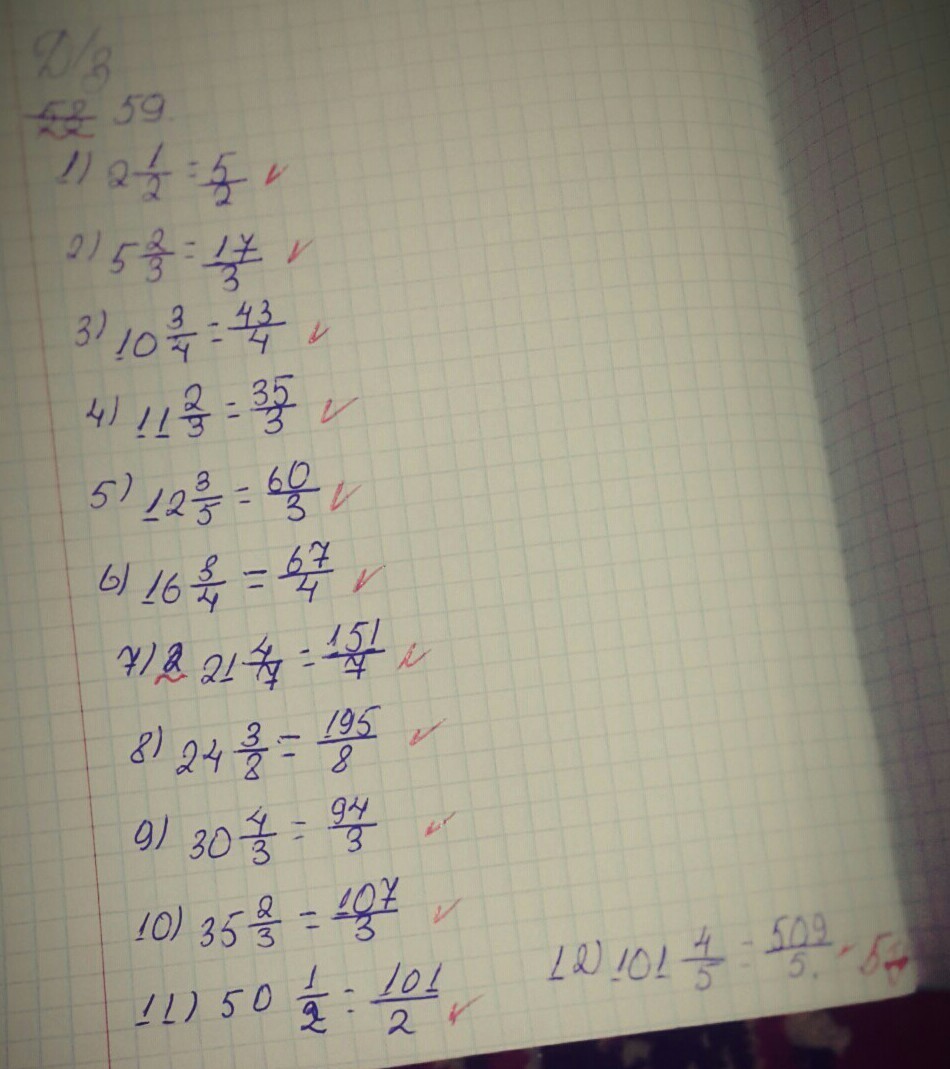 Д/З
58 59.
22
1) 2 1/2 = 5/2 ✓
2) 5 2/3 = 17/3 ✓
3) 10 3/4 = 43/4 ✓
4) 11 2/3 = 35/3 ✓
5) 12 3/5 = 60/3 ✓
6) 16 3/4 = 67/4 ✓
7) 2 21 4/7 = 151/7 ✓
8) 24 3/8 = 195/8 ✓
9) 30 4/3 = 94/3 ✓
10) 35 2/3 = 107/3 ✓
11) 50 1/2 = 101/2 ✓
12) 101 4/5 = 509/5.